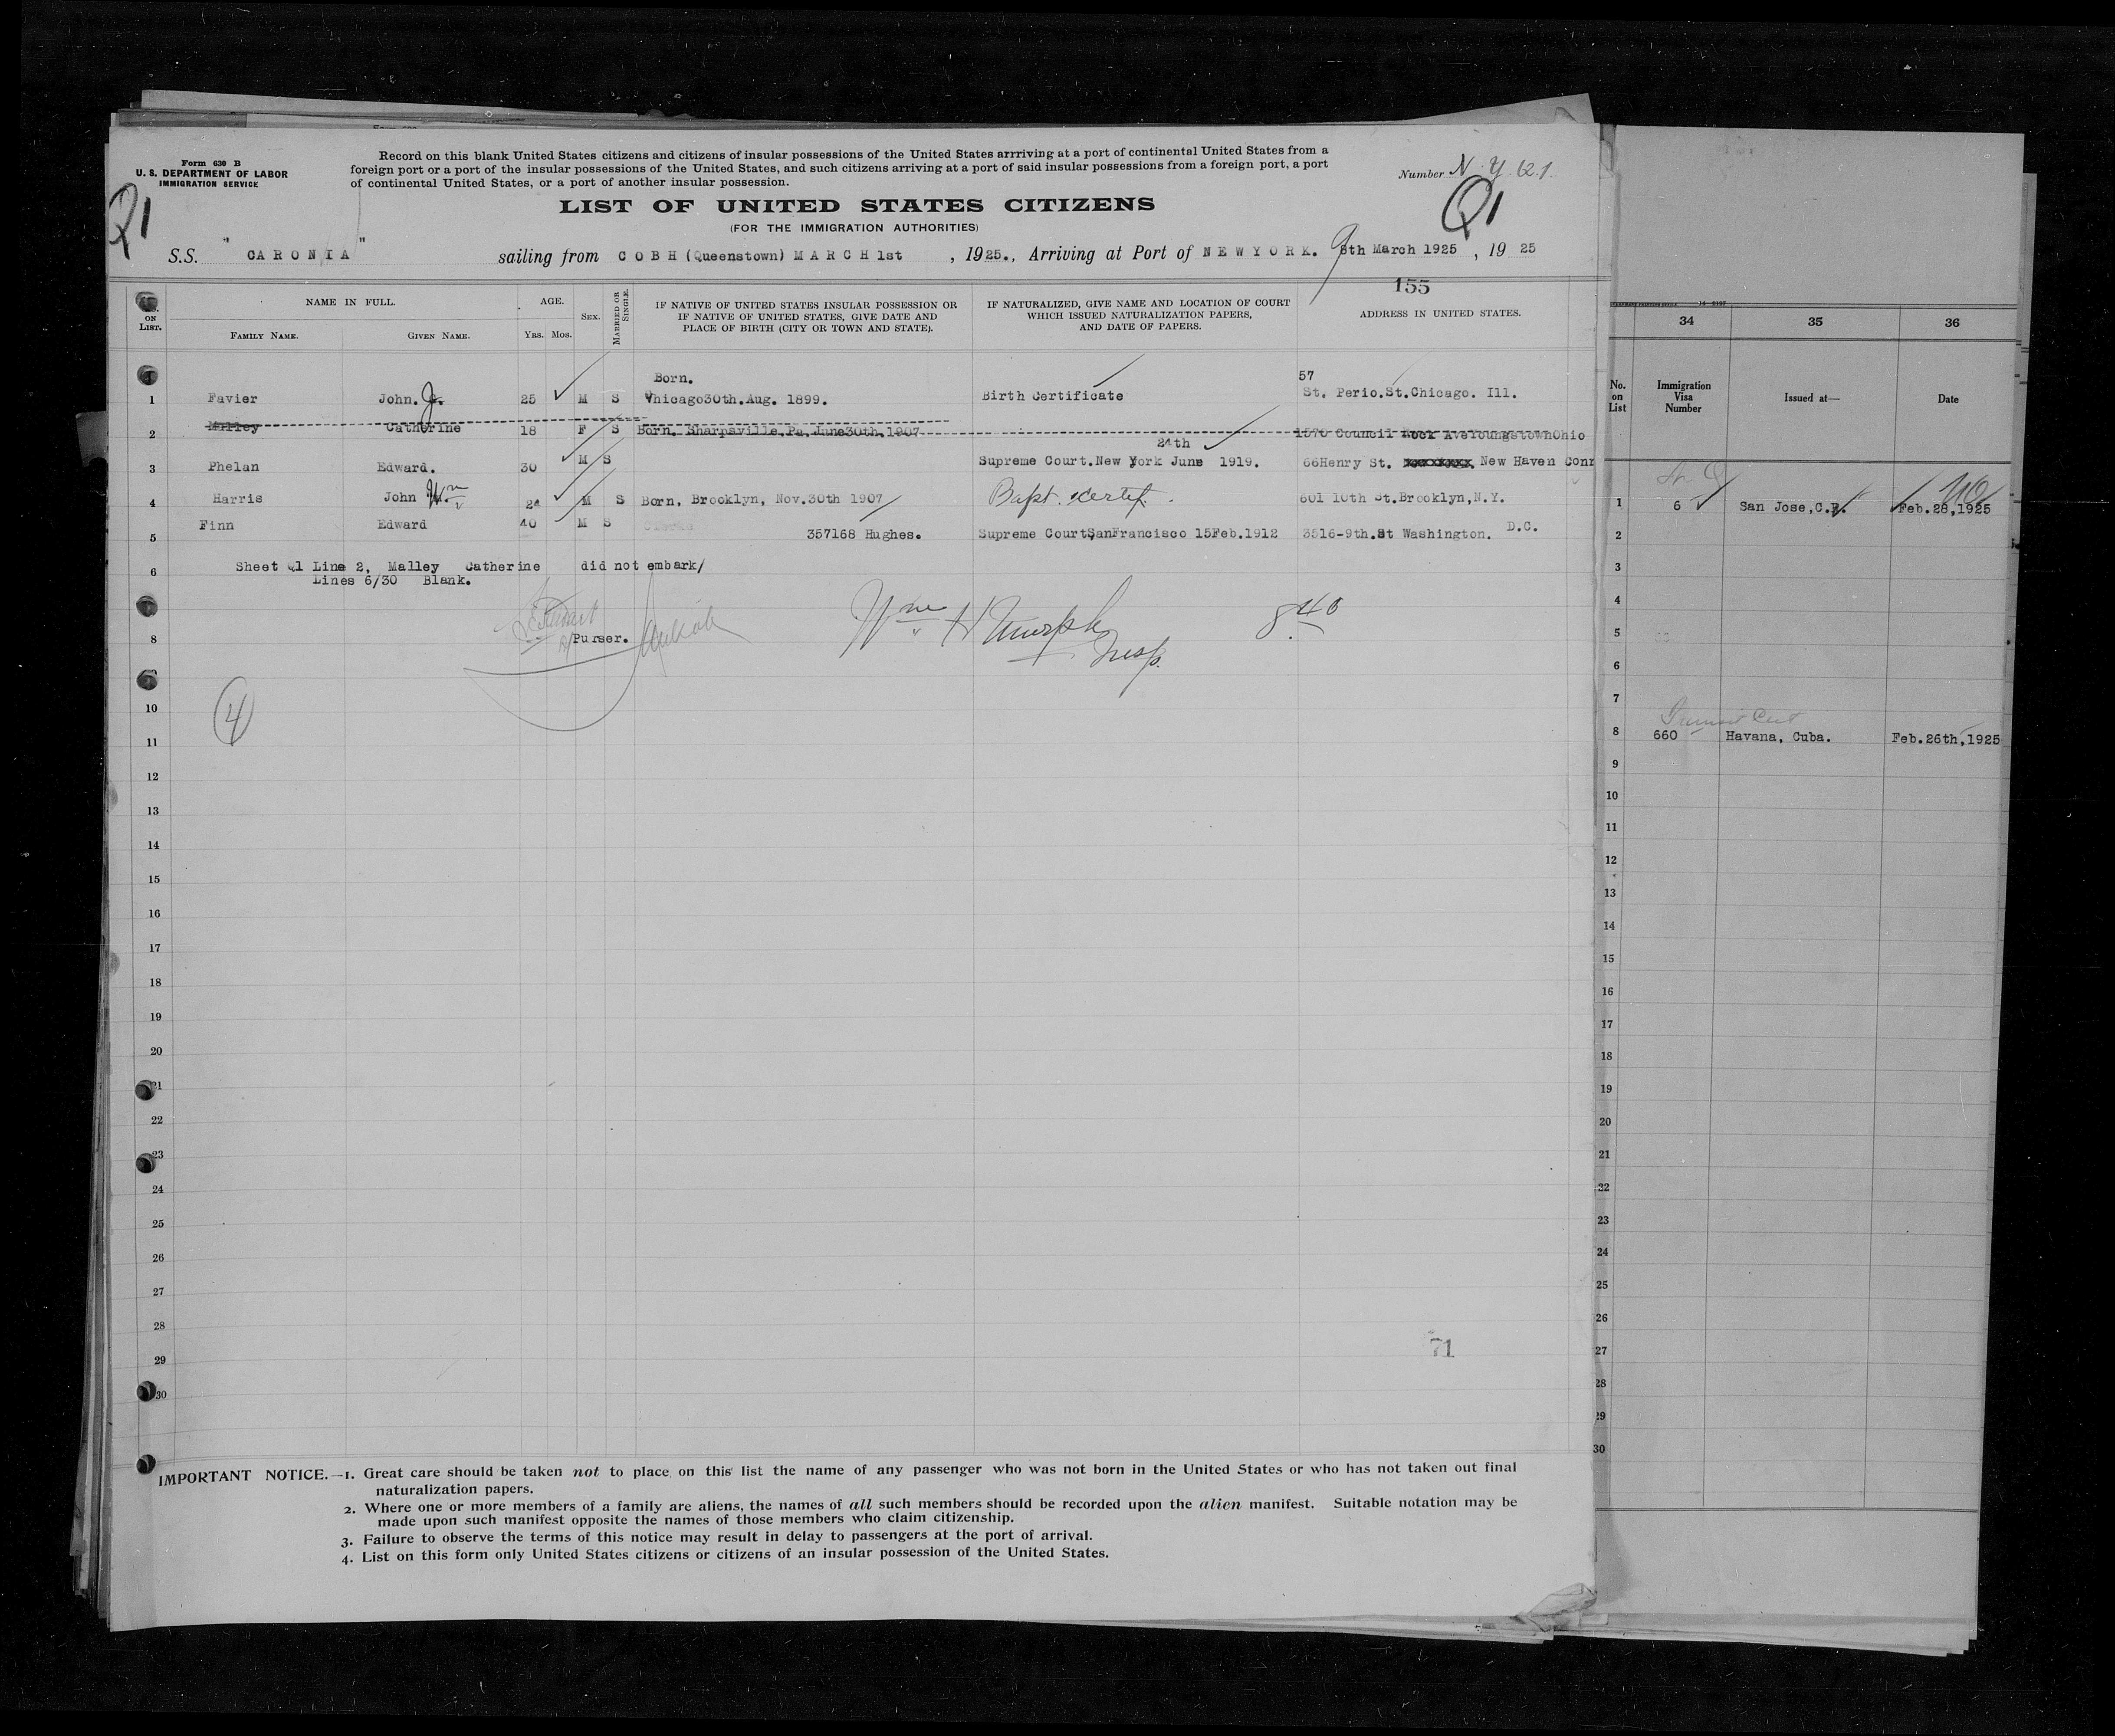 Form 630 B
U. S. DEPARTMENT OF LABOR
IMMIGRATION SERVICE
Record on this blank United States citizens and citizens of insular possessions of the United States arrriving at a port of continental United States from a
foreign port or a port of the insular possessions of the United States, and such citizens arriving at a port of said insular possessions from a foreign port, a port
of continental United States, or a port of another insular possession.
Number N. Y. Q.1.
Q1
Q1
LIST OF UNITED STATES CITIZENS
(FOR THE IMMIGRATION AUTHORITIES)
S.S. "CARONIA" sailing from COBH (Queenstown) MARCH 1st, 1925., Arriving at Port of NEWYORK. 9 8th March 1925, 19 25
155
No. ON LIST.
NAME IN FULL.
FAMILY NAME.
GIVEN NAME.
AGE.
YRS. MOS.
SEX.
MARRIED OR SINGLE.
IF NATIVE OF UNITED STATES INSULAR POSSESSION OR
IF NATIVE OF UNITED STATES, GIVE DATE AND
PLACE OF BIRTH (CITY OR TOWN AND STATE).
IF NATURALIZED, GIVE NAME AND LOCATION OF COURT
WHICH ISSUED NATURALIZATION PAPERS,
AND DATE OF PAPERS.
ADDRESS IN UNITED STATES.
Born. 57
1 Favier John. J. 25 M S Chicago30th.Aug. 1899. Birth Certificate St. Perio.St.Chicago. Ill.
2 Malley Catherine 18 F S Born, Sharpsville,Pa,June30th,1907 1570 Council Rock AveYoungstownOhio
24th
3 Phelan Edward. 30 M S Supreme Court.New York June 1919. 66Henry St. New Haven Conn
4 Harris John Wm 24 M S Born, Brooklyn, Nov.30th 1907 Bapt. Certif. 801 10th St.Brooklyn,N.Y.
Finn Edward 40 M S
5 357168 Hughes. Supreme Court,SanFrancisco 15Feb.1912 3516-9th.St Washington. D.C.
6 Sheet Q1 Line 2, Malley Catherine did not embark/
Lines 6/30 Blank.
8 Purser. Wm H Murphy Insp. 8 40
4
10
11
12
13
14
15
16
17
18
19
20
21
22
23
24
25
26
27
28
29
30
71
IMPORTANT NOTICE.—1. Great care should be taken not to place on this list the name of any passenger who was not born in the United States or who has not taken out final
naturalization papers.
2. Where one or more members of a family are aliens, the names of all such members should be recorded upon the alien manifest. Suitable notation may be
made upon such manifest opposite the names of those members who claim citizenship.
3. Failure to observe the terms of this notice may result in delay to passengers at the port of arrival.
4. List on this form only United States citizens or citizens of an insular possession of the United States.
34 35 36
No. on List
Immigration Visa Number
Issued at—
Date
1 6 San Jose,C.R. Feb.28,1925
2
3
4
5
6
7
8 660 Havana, Cuba. Feb.26th,1925
9
10
11
12
13
14
15
16
17
18
19
20
21
22
23
24
25
26
27
28
29
30